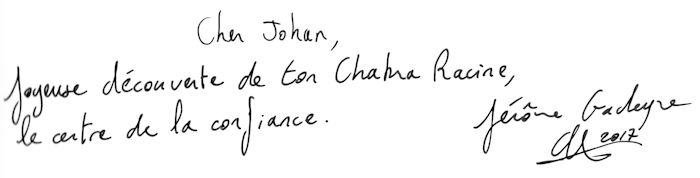 Cher Johan,
Joyeuse découverte de ton Chakra Racine,
le centre de la confiance.
Jérôme Gadeyne
2017